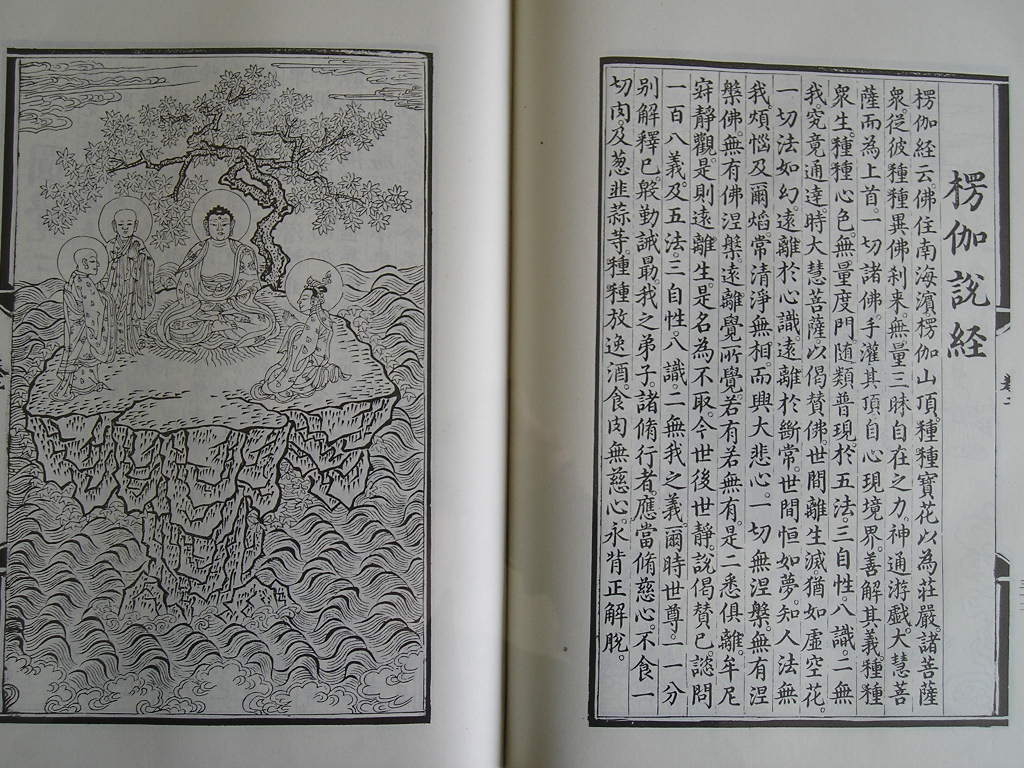 楞伽說経
楞伽経云。佛住南海濱楞伽山頂。種種寶花以為莊嚴。諸菩薩
衆從彼種種異佛刹来。無量三昧自在之力。神通游戯。大慧菩
薩而為上首。一切諸佛。手灌其頂。自心現境界。善解其義。種種
衆生種種心色。無量度門。随類普現。於五法。三自性。八識。二無
我。究竟通達。時大慧菩薩。以偈賛佛。世間離生滅。猶如虚空花。
一切法如幻。遠離於心識。遠離於断常。世間恒如夢。知人法無
我。煩惱及爾熖。常清淨無相。而興大悲心。一切無涅槃。無有涅
槃佛。無有佛涅槃。遠離覺所覺。若有若無有。是二悉俱離。牟尼
寂靜觀。是則遠離生。是名為不取。今世後世靜。說偈賛已。諮問
一百八義。及五法。三自性。八識。二無我之義。爾時世尊。一一分
别解釋已。慇勤誡最。我之弟子。諸脩行者。應當脩慈心。不食一
切肉。及葱韮蒜等。種種放逸酒。食肉無慈心。永背正解脫。
卷二